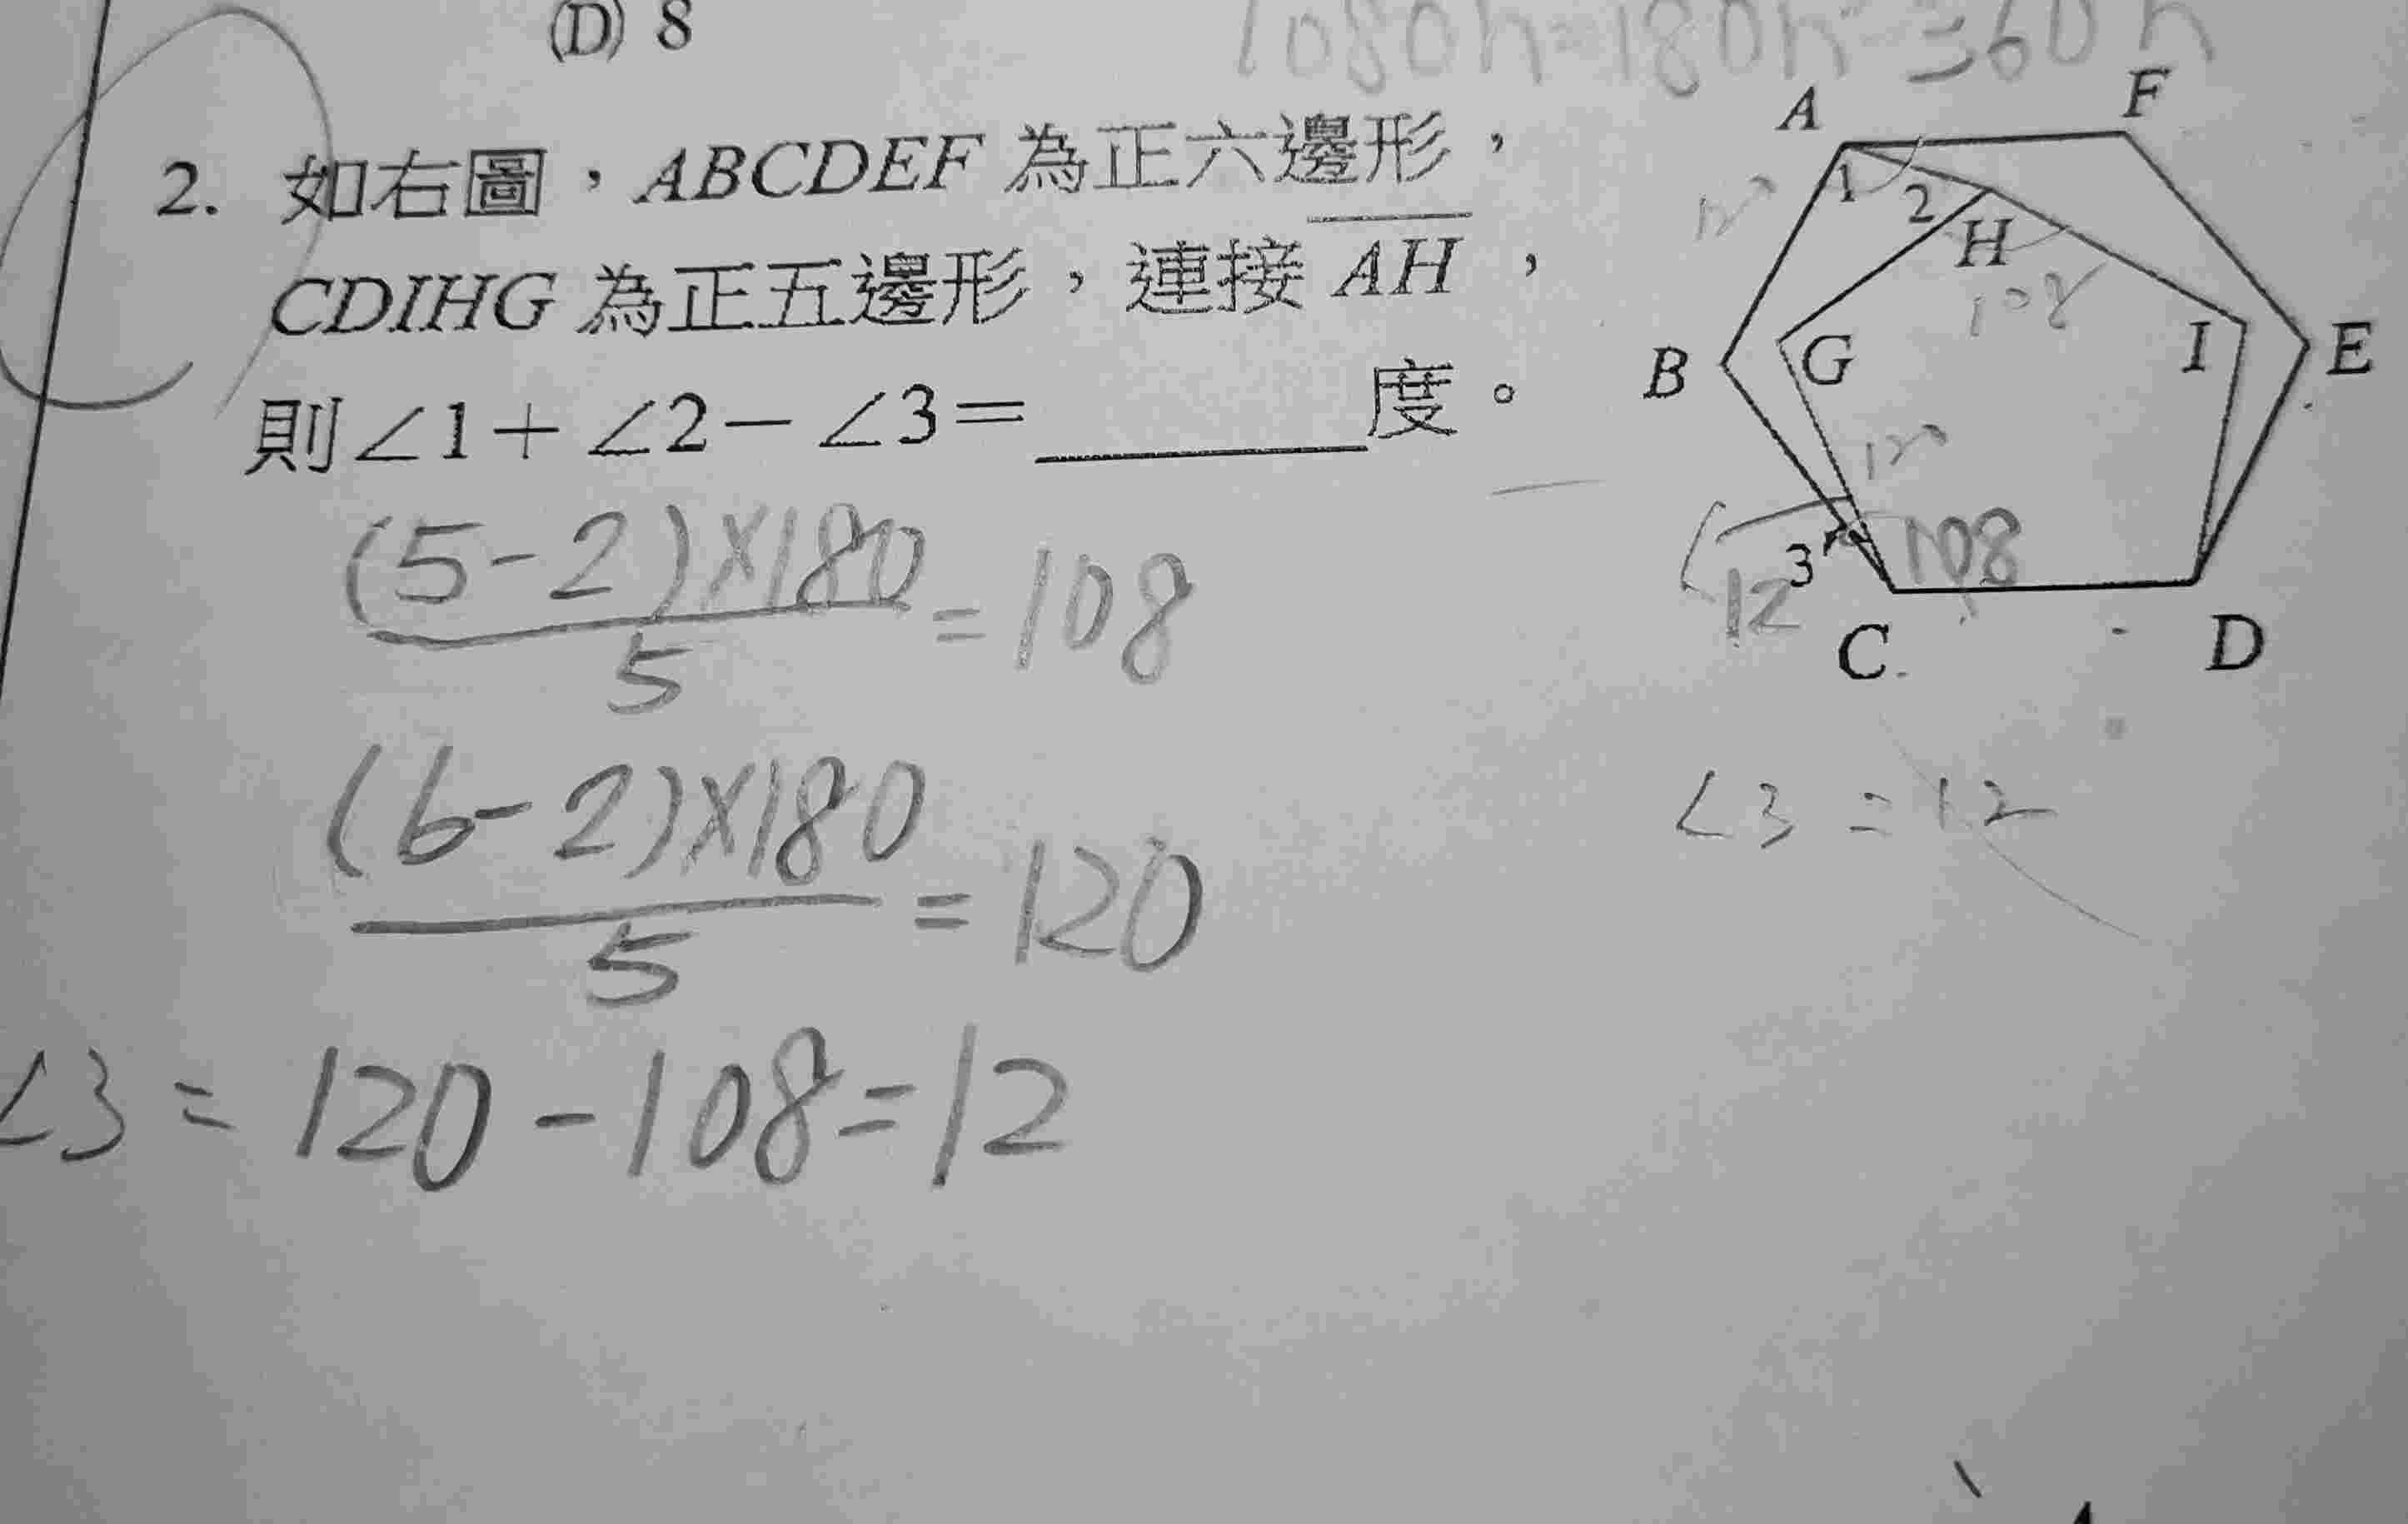 (D) 8
1080n-180n=360n
2. 如右圖，ABCDEF 為正六邊形，
CDIHG 為正五邊形，連接 AH，
則∠1＋∠2－∠3＝______度。
A
F
1
2
H
108
B
G
I
E
120
3
12
108
C
D
(5-2)×180
5
=108
(6-2)×180
5
=120
∠3=12
∠3=120-108=12